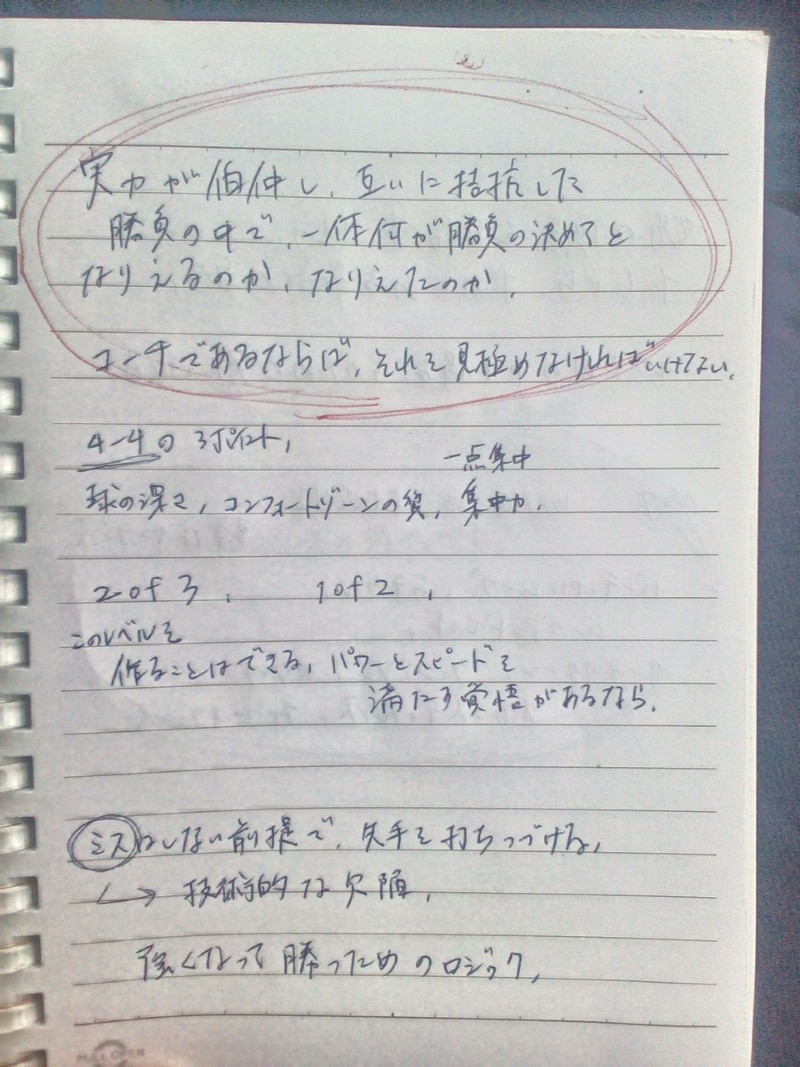 実力が伯仲し、互いに拮抗した
勝負の中で、一体何が勝負の決め手と
なりえるのか、なりえたのか。
コーチであるならば、それを見極めなければいけない。
4-4の3ポイント、
一点集中
球の深さ、コンフォートゾーンの質、集中力、
2 of 3、 1 of 2、
このレベルを
作ることはできる、パワーとスピードを
満たす覚悟があるなら、
ミスはしない前提で、先手を打ちつづける、
↳ 技術的な欠陥、
強くなって勝つためのロジック、
PULL OPEN